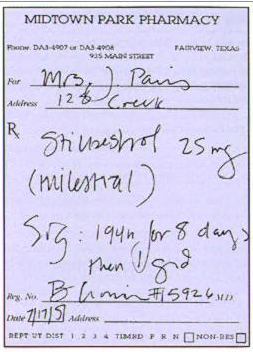 MIDTOWN PARK PHARMACY
Phone DA3-4907 or DA3-4908
935 MAIN STREET
FAIRVIEW, TEXAS
For Mrs. J Pavis
Address 128 Creek
Rx Stilbestrol 25 mg
(Milestrol)
Sig: for 8 days
then
Reg. No. #15926 M.D.
Date 7/17/57 Address
REPT UT DIST 1 2 3 4 TIMRD P R N NON-RES